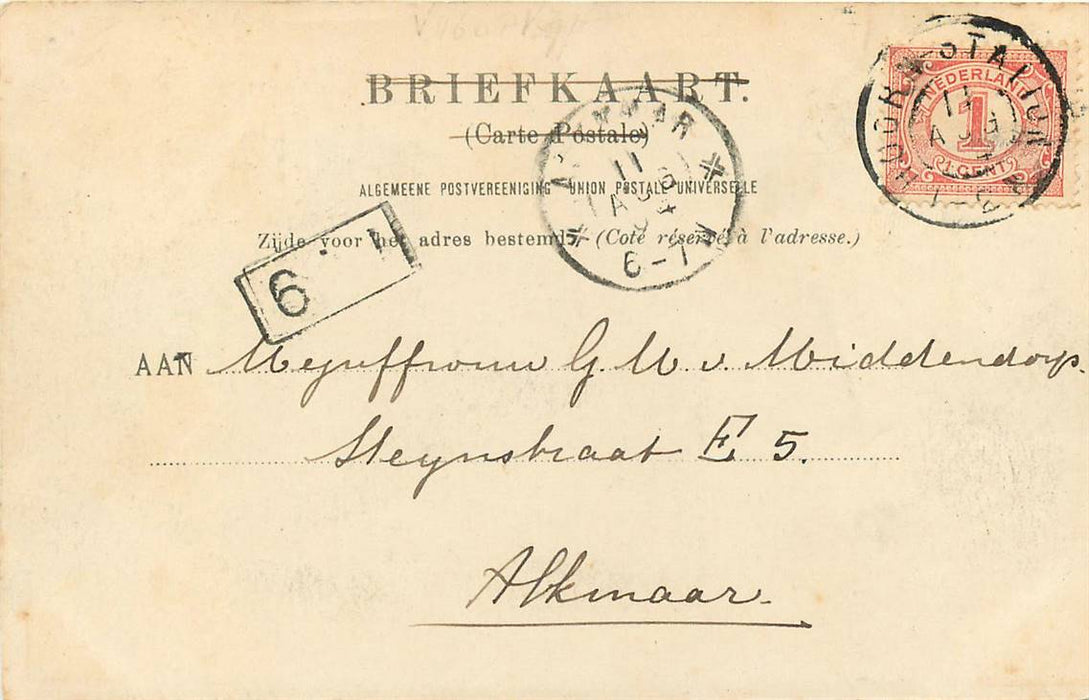 BRIEFKAART.
(Carte Postale)
ALGEMEENE POSTVEREENIGING UNION POSTALE UNIVERSELLE
Zijde voor het adres bestemd. - (Coté réservé à l'adresse.)
NEDERLAND
1
CENT
HOORN-STATION
11
AUG
ALKMAAR
11
AUG
4
6-7 N
6
AAN Mejuffrouw G. M. v. Middendorp.
Steynstraat E 5.
Alkmaar.